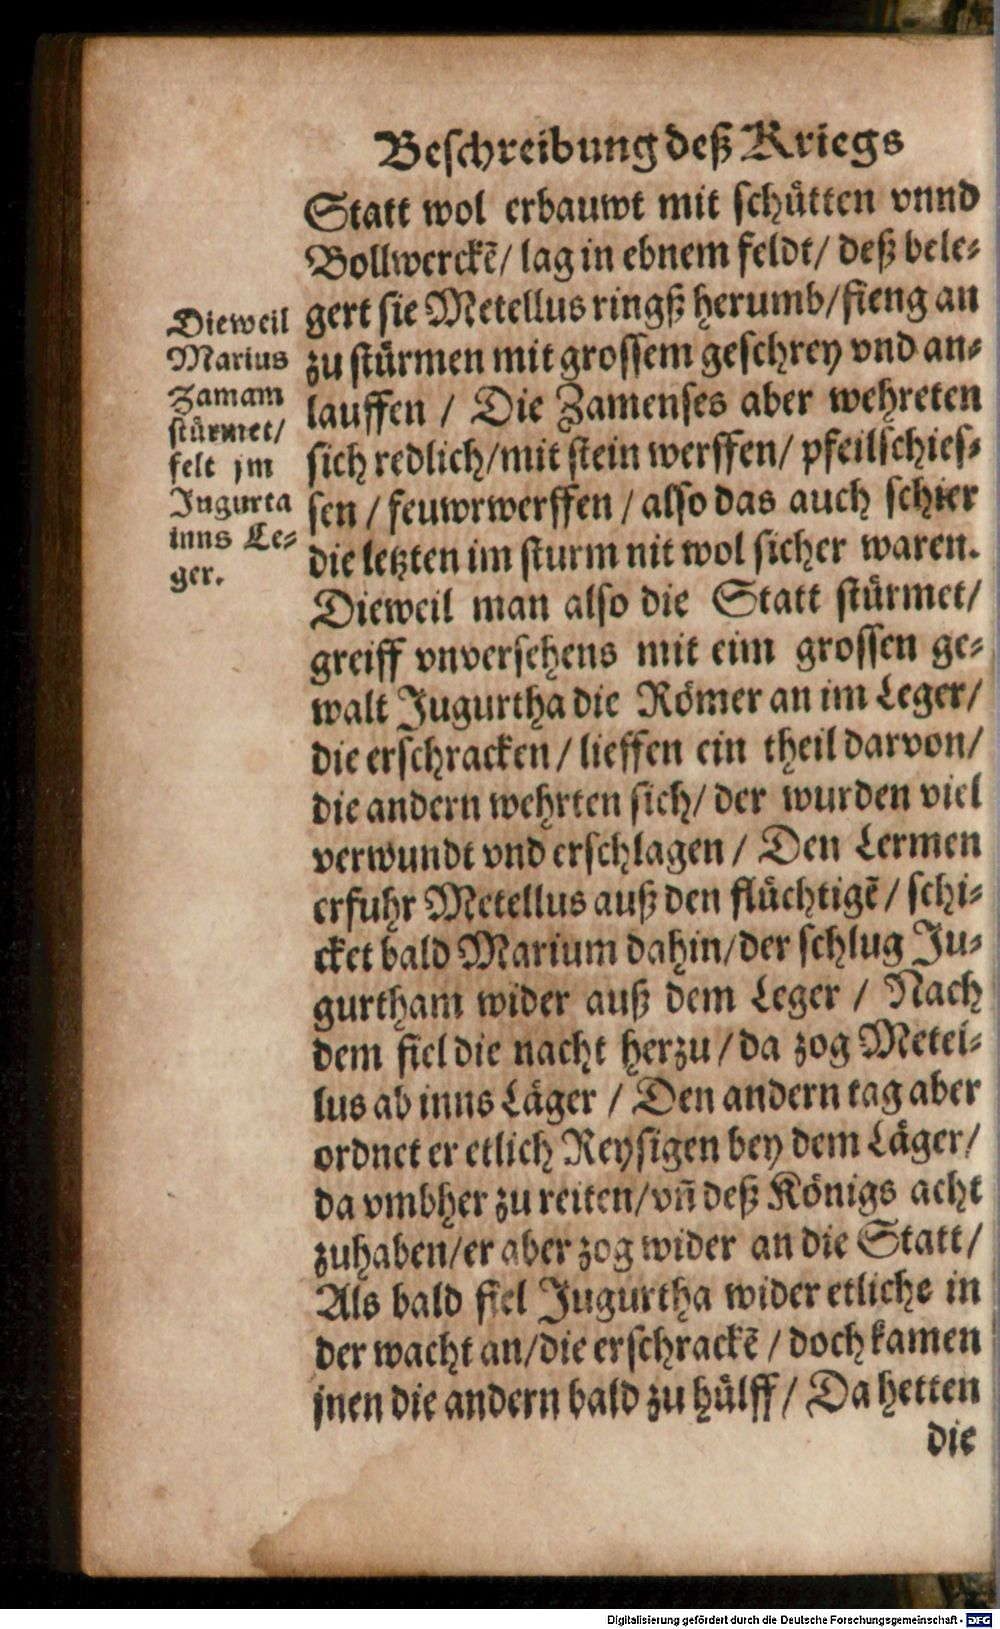 Beschreibung deß Kriegs
Statt wol erbauwt mit schütten vnnd
Bollwerckē/ lag in ebnem feldt/ deß bele-
gert sie Metellus ringß herumb/ fieng an
zu stürmen mit grossem geschrey vnd an-
lauffen / Die Zamenses aber wehreten
sich redlich/ mit stein werffen/ pfeilschies-
sen / feuwrwerffen / also das auch schier
die letzten im sturm nit wol sicher waren.
Dieweil man also die Statt stürmet/
greiff vnversehens mit eim grossen ge-
walt Jugurtha die Römer an im Leger/
die erschracken / lieffen ein theil darvon/
die andern wehrten sich/ der wurden viel
verwundt vnd erschlagen / Den Lermen
erfuhr Metellus auß den flüchtigē / schi-
cket bald Marium dahin/ der schlug Ju-
gurtham wider auß dem Leger / Nach
dem fiel die nacht herzu / da zog Metel-
lus ab inns Läger / Den andern tag aber
ordnet er etlich Reysigen bey dem Läger/
da vmbher zu reiten/ vn̄ deß Königs acht
zuhaben/ er aber zog wider an die Statt/
Als bald fiel Jugurtha wider etliche in
der wacht an/ die erschrackē / doch kamen
jnen die andern bald zu hülff / Da hetten
die
Dieweil
Marius
Zamam
stürmet/
felt jm
Jugurta
inns Le-
ger.
Digitalisierung gefördert durch die Deutsche Forschungsgemeinschaft - DFG